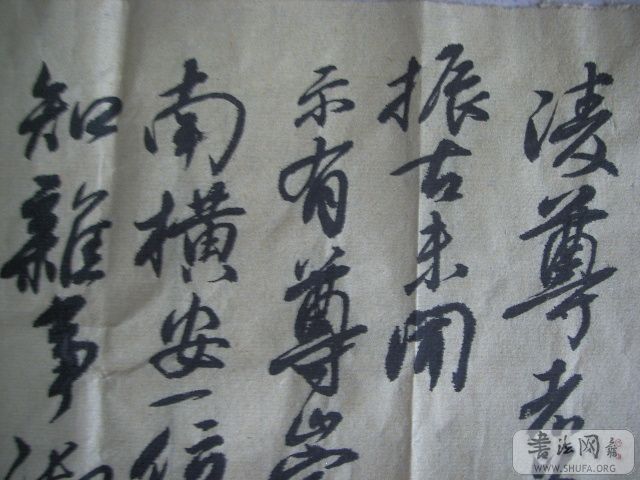 凌尊者
振古未闻
示有尊崇
南横安一倍
知杂事御
书法网
WWW.SHUFA.ORG